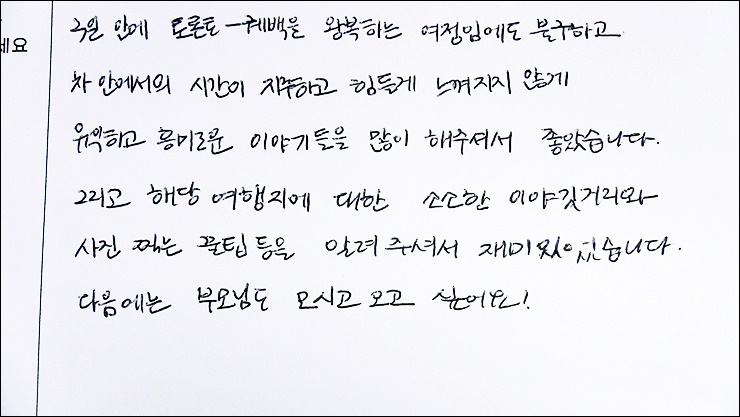 세요
2일 안에 토론토-퀘백을 왕복하는 여정임에도 불구하고
차 안에서의 시간이 지루하고 힘들게 느껴지지 않게
유익하고 흥미로운 이야기들을 많이 해주셔서 좋았습니다.
그리고 해당 여행지에 대한 소소한 이야깃거리와
사진 찍는 꿀팁 등을 알려 주셔서 재미있었습니다.
다음에는 부모님도 모시고 오고 싶어요!